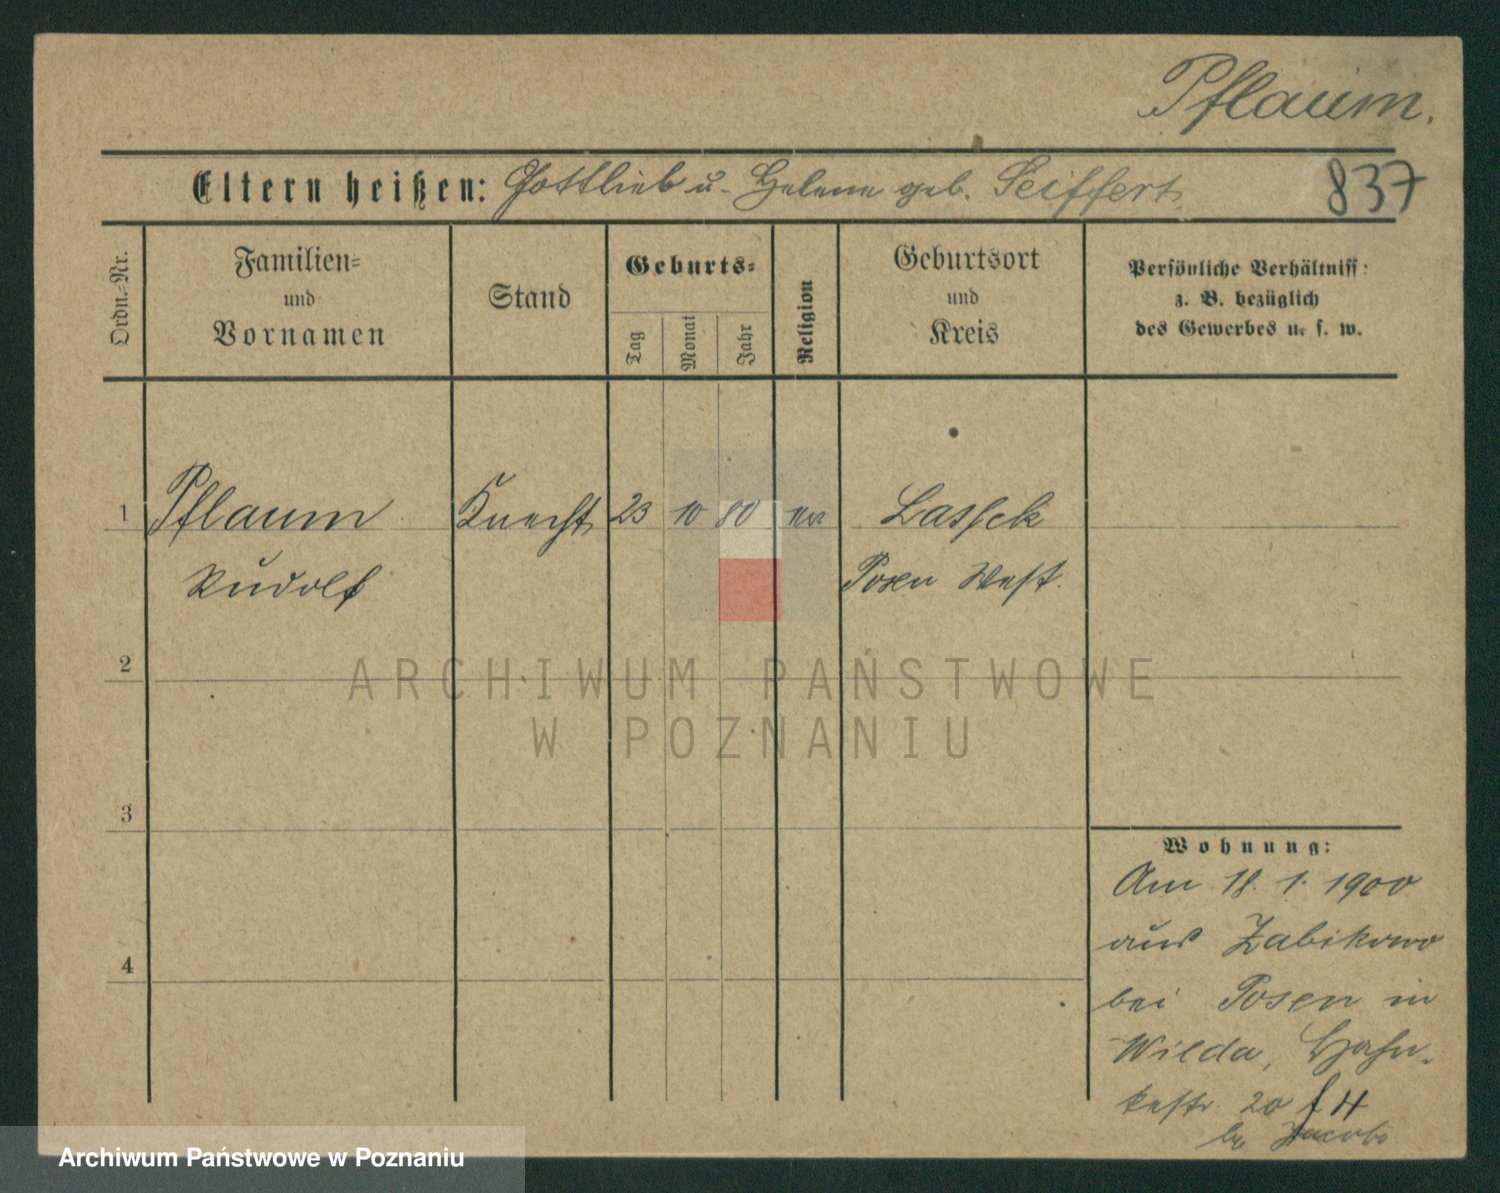 Pflaum.
Eltern heißen: Gottlieb u. Helene geb. Seiffert
837
Ordn.-Nr.
Familien-
und
Vornamen
Stand
Geburts-
Tag
Monat
Jahr
Religion
Geburtsort
und
Kreis
Persönliche Verhältniss:
z. B. bezüglich
des Gewerbes u. s. w.
1 Pflaum Knecht 23 10 80 ev Lassek
Rudolf Posen West.
2
ARCHIWUM PAŃSTWOWE
W POZNANIU
3
Wohnung:
Am 18. 1. 1900
aus Zabikowo
4
bei Posen in
Wilda,
20 4
Jacobi
Archiwum Państwowe w Poznaniu